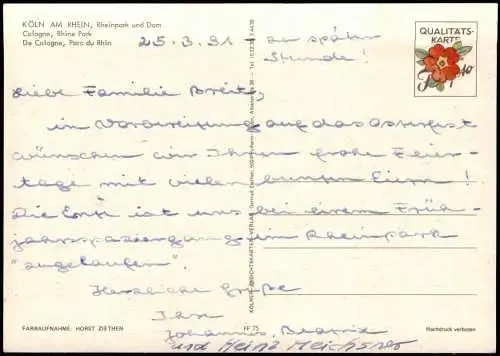 KÖLN AM RHEIN, Rheinpark und Dom
Cologne, Rhine Park
De Cologne, Parc du Rhin
25.3.91 zu später
Stunde!
QUALITÄTS-
KARTE
Liebe Familie Breit,
in Vorbereitung auf das Osterfest
wünschen wir Ihnen frohe Feier-
tage mit vielen bunten Eiern!
Die Ente ist uns bei einem Früh-
jahrsspaziergang im Rheinpark
"zugelaufen".
Herzliche Grüße
Ihre
Johannes, Beatrix
und Heinz Meichsner
FARBAUFNAHME: HORST ZIETHEN
FF 75
Nachdruck verboten